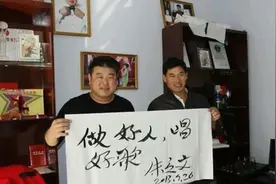 做好人,唱
好歌
朱之文
2013.9.26